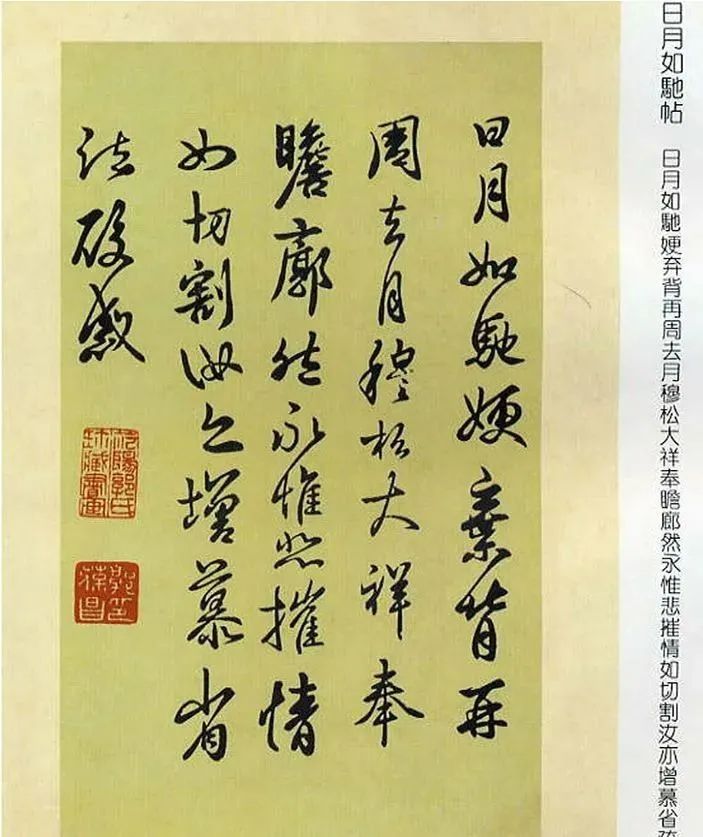 日月如馳帖
日月如馳㛐弃背再周去月穆松大祥奉瞻廊然永惟悲摧情如切割汝亦增慕省
日月如馳㛐棄背再
周去月穆松大祥奉
瞻廓然永惟悲摧情
如切割汝亦增慕省
疏酸感